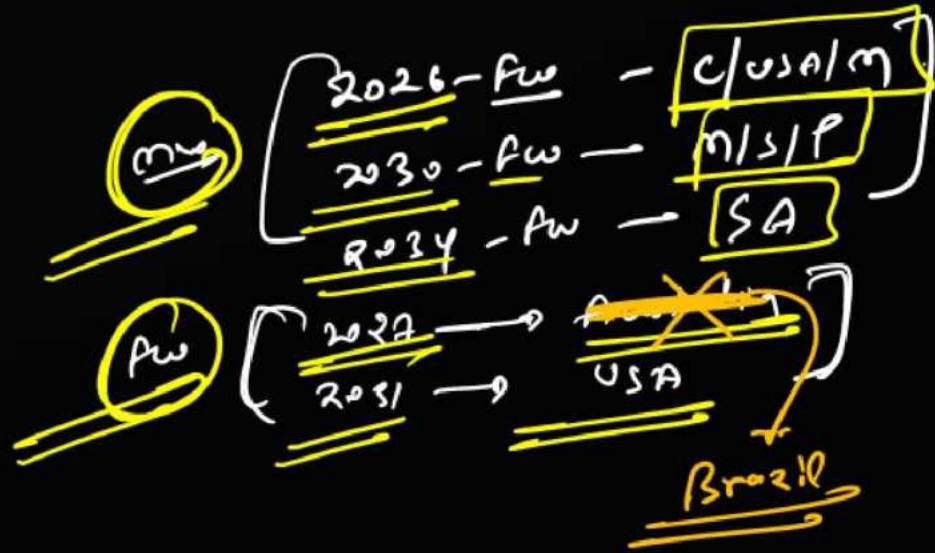 2026 - FW - C/USA/M
2030 - FW - M/S/P
2034 - FW - SA
FW 2027 →
2031 → USA
Brazil